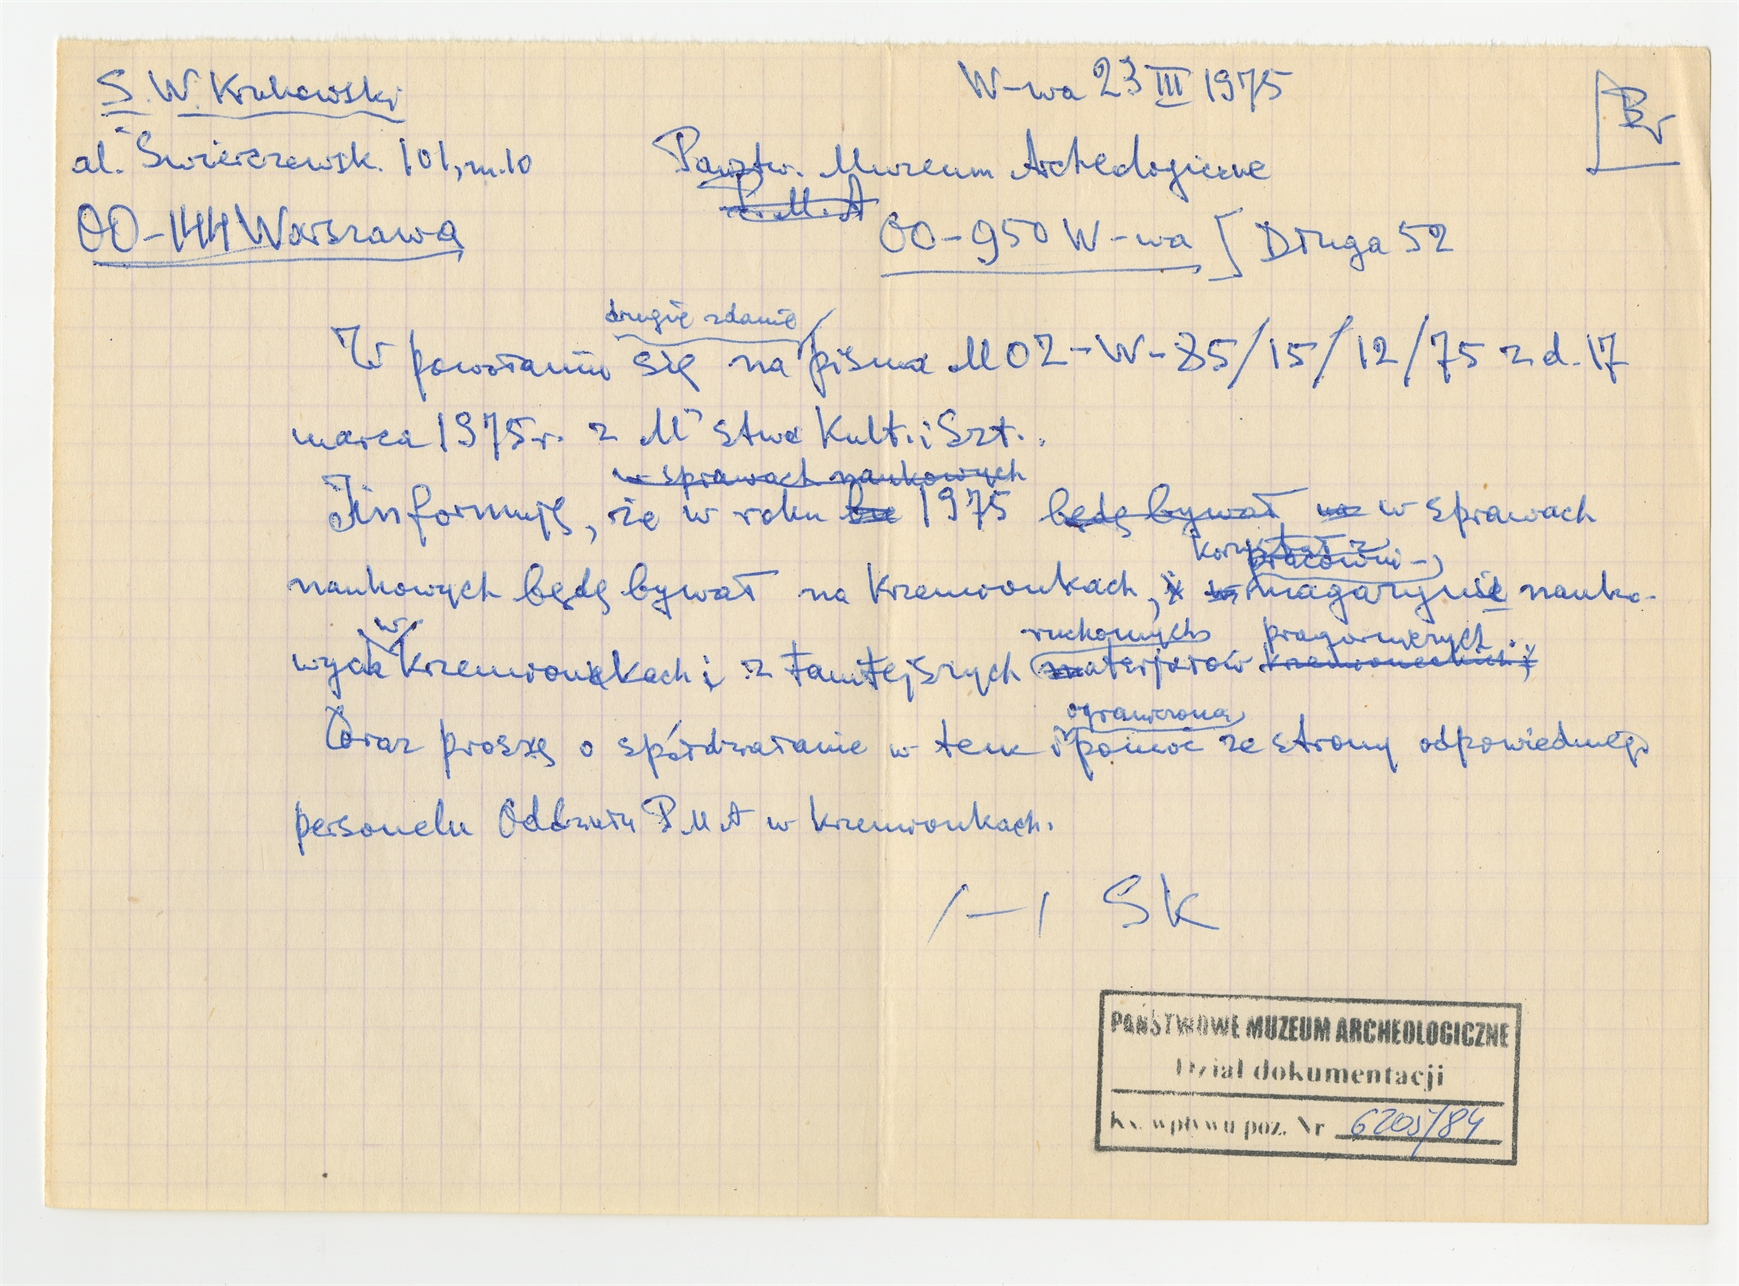 S. W. Krukowski
W-wa 23 III 1975
Br
al. Świerczewsk. 101, m. 10
Państw. Muzeum Archeologiczne
P. M. A
00-144 Warszawa
00-950 W-wa ] Długa 52
drugie zdanie
W powołaniu się na pisma MOZ-W-85/15/12/75 z d. 17
marca 1975 r. z M-stwa Kult. i Szt.
w sprawach naukowych
Informuję, że w roku 1975 będę bywał na w sprawach
korzystał z pracowni-
naukowych będę bywał na Krzemionkach, i w magazynie nauko-
w ruchomych pragórniczych
wych Krzemionkach i z tamtejszych materjałów krzemioneckich i
ograniczoną
Oraz proszę o spółdziałanie w tem i pomoc ze strony odpowiedniego
personelu Oddziału PMA w Krzemionkach.
/-/ SK
PAŃSTWOWE MUZEUM ARCHEOLOGICZNE
Dział dokumentacji
Ks. wpływu poz. Nr 6205/84